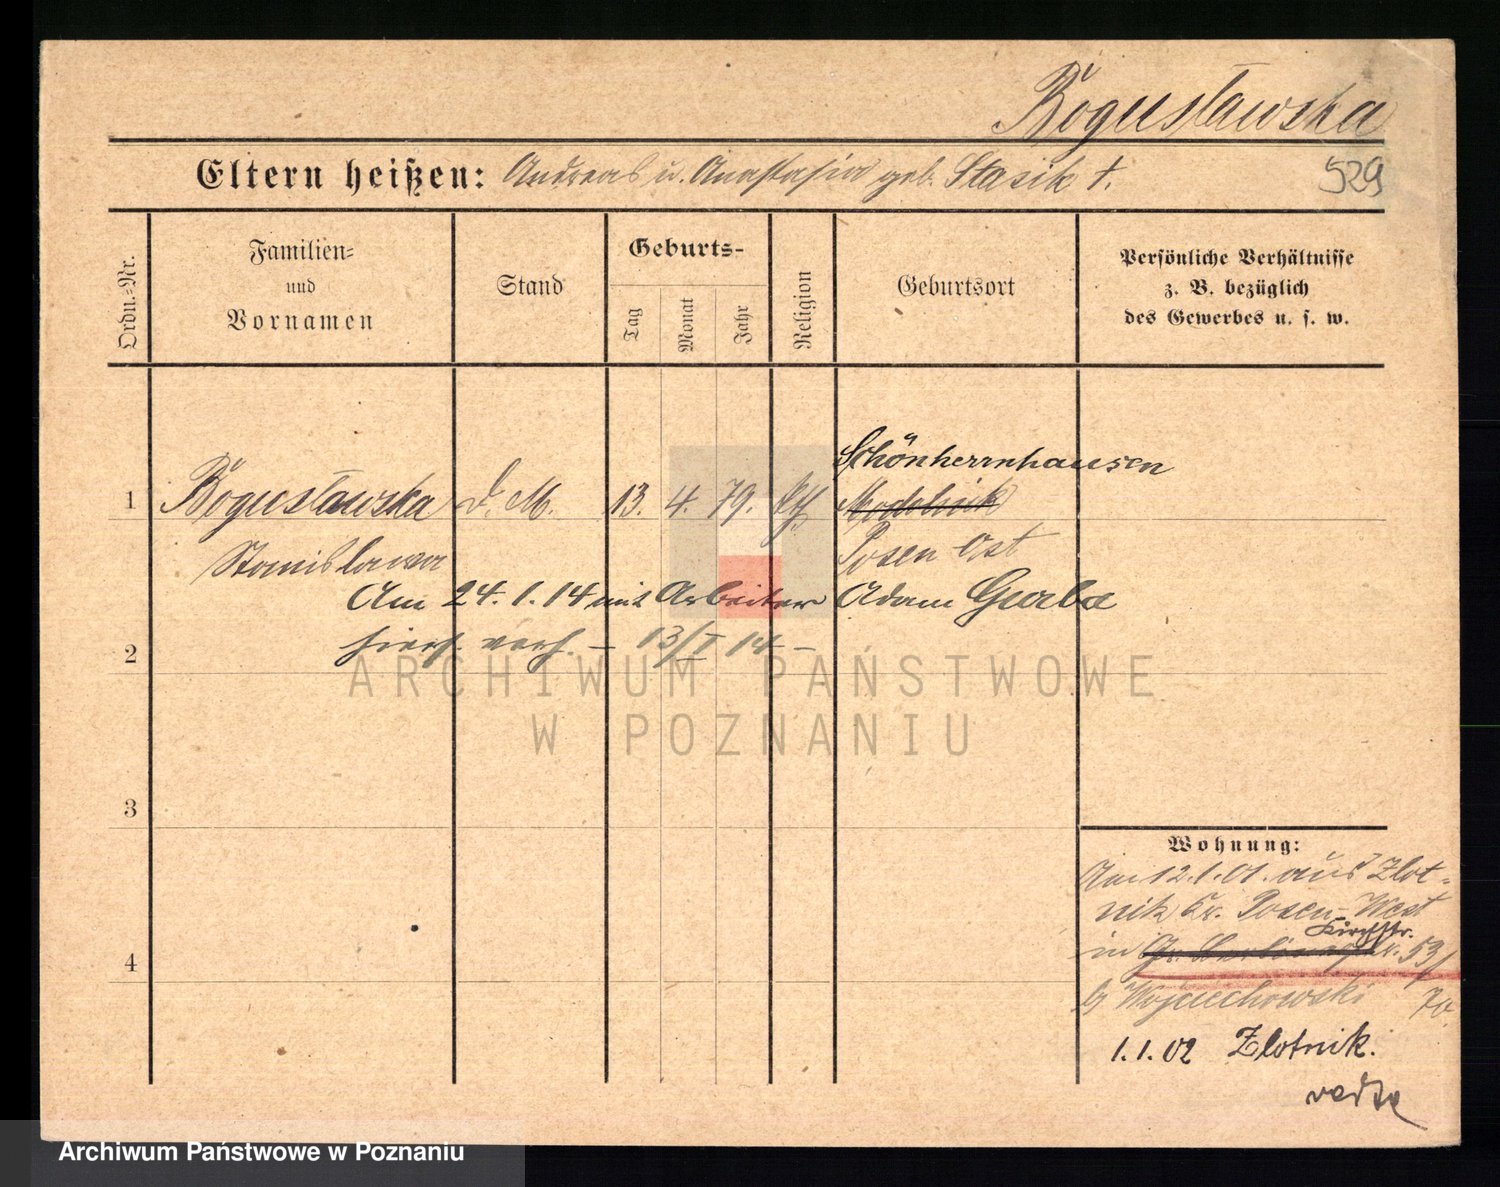 Bogusławska
Eltern heißen: Andreas u. Anastasia geb. Stasik †.
529
Ordn.-Nr.
Familien-
und
Vornamen
Stand
Geburts-
Tag
Monat
Jahr
Religion
Geburtsort
Persönliche Verhältnisse
z. B. bezüglich
des Gewerbes u. s. w.
Schönherrnhausen
1 Bogusławska d. M. 13. 4. 79. kth
Stanislawa Posen Ost
Am 24.1.14 mit Arbeiter Adam Gurba
2 hiers. verh. – 13/I 14 –
ARCHIWUM PAŃSTWOWE
W POZNANIU
3
4
Wohnung:
Am 12.1.01. aus Zlot-
nik Kr. Posen-West
Kirchstr.
in 53/
b/ Wojciechowski 70.
1.1.02 Zlotnik.
Archiwum Państwowe w Poznaniu